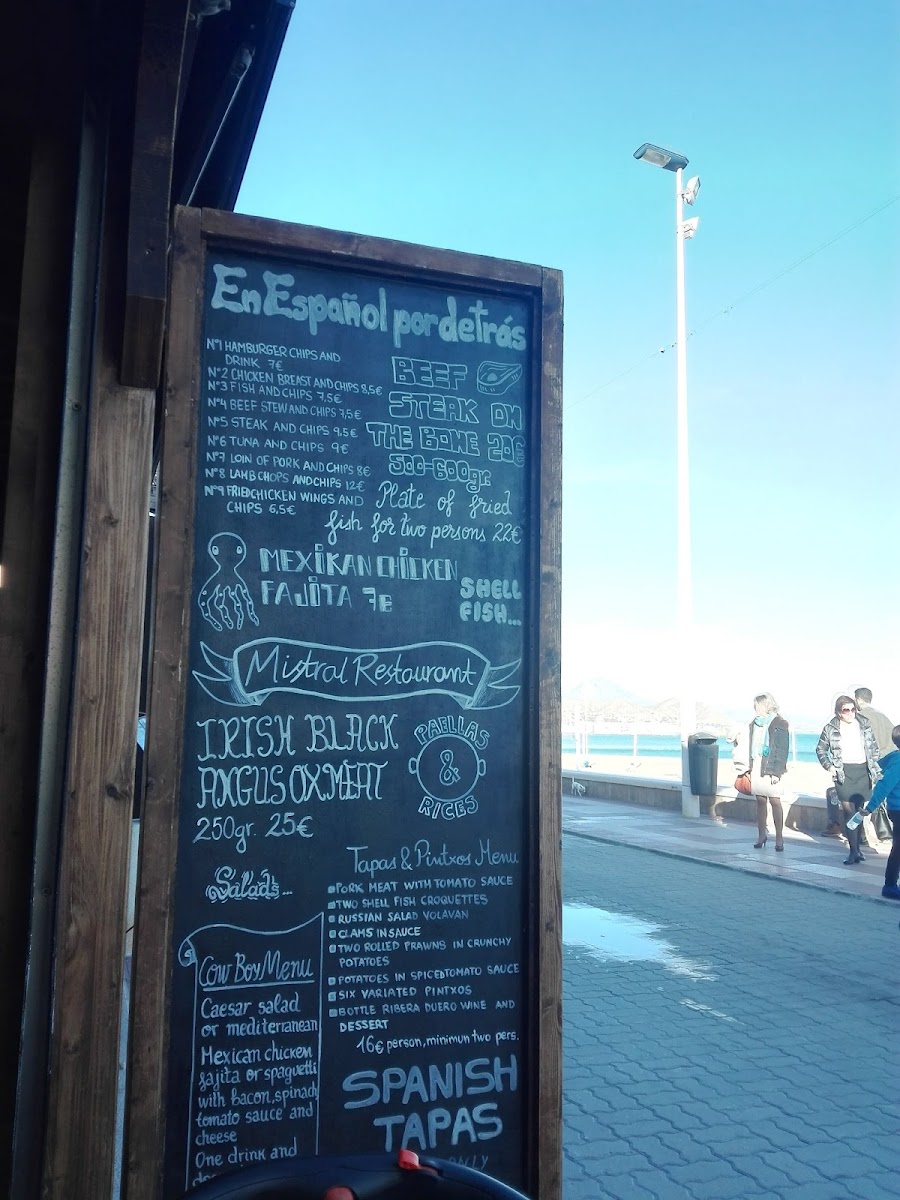 En Español por detrás
Nº1 HAMBURGER CHIPS AND
DRINK 7€
Nº2 CHICKEN BREAST AND CHIPS 8,5€
Nº3 FISH AND CHIPS 7,5€
Nº4 BEEF STEW AND CHIPS 7,5€
Nº5 STEAK AND CHIPS 9,5€
Nº6 TUNA AND CHIPS 9€
Nº7 LOIN OF PORK AND CHIPS 8€
Nº8 LAMB CHOPS AND CHIPS 12€
Nº9 FRIED CHICKEN WINGS AND
CHIPS 6,5€
BEEF
STEAK ON
THE BONE 20€
500-600gr.
Plate of fried
fish for two persons 22€
MEXIKAN CHICKEN
FAJITA 7€
SHELL
FISH...
Mistral Restaurant
IRISH BLACK
ANGUS OX MEAT
250gr. 25€
PAELLAS
&
RICES
Salads...
Tapas & Pintxos Menu
PORK MEAT WITH TOMATO SAUCE
TWO SHELL FISH CROQUETTES
RUSSIAN SALAD VOLAVAN
CLAMS IN SAUCE
TWO ROLLED PRAWNS IN CRUNCHY
POTATOES
POTATOES IN SPICED TOMATO SAUCE
SIX VARIATED PINTXOS
BOTTLE RIBERA DUERO WINE AND
DESSERT
16€ person, minimun two pers.
Cow Boy Menu
Caesar salad
or mediterranean
Mexican chicken
fajita or spaguetti
with bacon, spinach
tomato sauce and
cheese
One drink and
SPANISH
TAPAS